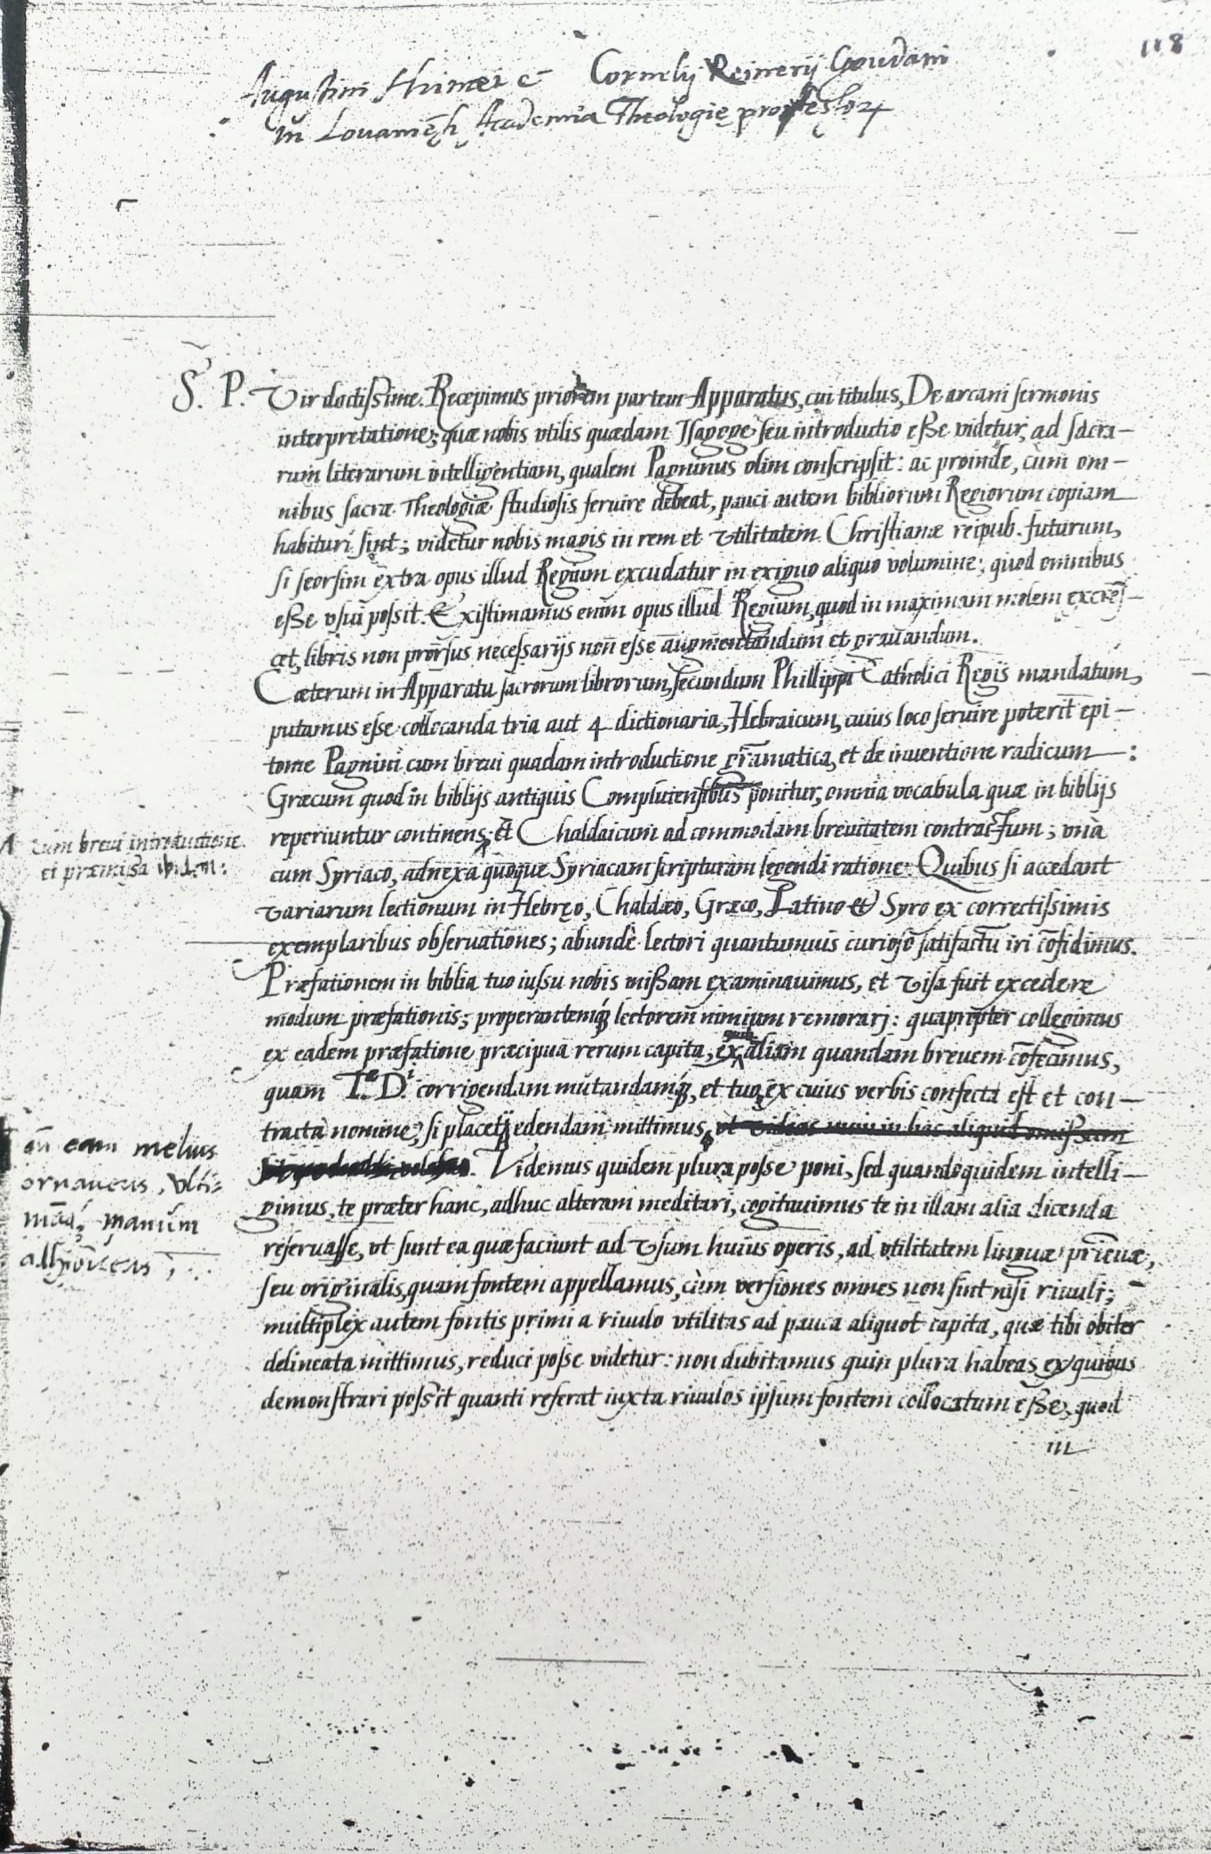 118
Augustini Hunnæi & Cornelij Reinerij Goudani
in Lovaniēsi Academia Theologię professor
S. P. Vir doctissime. Recepimus priorem partem Apparatus, cui titulus, De arcani sermonis
interpretatione; quæ nobis vtilis quædam Isagoge seu introductio esse videtur, ad sacra-
rum literarum intelligentiam, qualem Pagninus olim conscripsit: ac proinde, cùm om-
nibus sacræ Theologiæ studiosis seruire debeat, pauci autem bibliorum Regiorum copiam
habituri sint; videtur nobis magis in rem et vtilitatem Christianæ reipub. futurum,
si seorsim extra opus illud Regium excudatur in exiguo aliquo volumine; quod omnibus
esse vsui possit. Existimamus enim opus illud Regium, quod in maximam molem excres-
cet, libris non prorsus necessarijs non esse augmentandum et grauandum.
Cæterum in Apparatu sacrorum librorum, secundum Phillippi Catholici Regis mandatum,
putamus esse collocanda tria aut 4 dictionaria, Hebraicum, cuius loco seruire poterit epi-
tome Pagnini cum breui quadam introductione grāmatica, et de inuentione radicum :
Græcum quod in biblijs antiquis Complutensibus ponitur, omnia vocabula quæ in biblijs
reperiuntur continens; et Chaldaicum ad commodam breuitatem contractum; vnà
cum breui introductione
et præmissa ibidem:
cum Syriaco, adnexa quoque Syriacam scripturam legendi ratione. Quibus si accedant
variarum lectionum in Hebręo, Chaldæo, Græco, Latino et Syro ex correctissimis
exemplaribus obseruationes; abundè lectori quantumuis curioso satisfactū iri cōfidimus.
Præfationem in biblia tuo iussu nobis missam examinauimus, et visa fuit excedere
modum præfationis; properantemq́; lectorem nimium remorari: quapropter collegimus
ex eadem præfatione præcipua rerum capita, ex aliam quandam breuem cōfecimus,
quam T. D. corrigendam mutandamq́;, et tuo, ex cuius verbis confecta est et con-
tracta nomine, si placet, edendam mittimus, vt videas num in hac aliquid omissum
cū eam melius
ornaueris, vlti-
māq́; manum
adhibueris,
. Videmus quidem plura posse poni, sed quandoquidem intelli-
gimus, te præter hanc, adhuc alteram meditari, cogitauimus te in illam alia dicenda
reseruasse, vt sunt ea quæ faciunt ad vsum huius operis, ad vtilitatem linguæ primæuæ,
seu originalis, quam fontem appellamus, cùm versiones omnes non sint nisi riuuli;
multiplex autem fontis primi a riuulo vtilitas ad pauca aliquot capita, quæ tibi obiter
delineata mittimus, reduci posse videtur: non dubitamus quin plura habeas ex quibus
demonstrari possit quanti referat iuxta riuulos ipsum fontem collocatum esse, quod
in